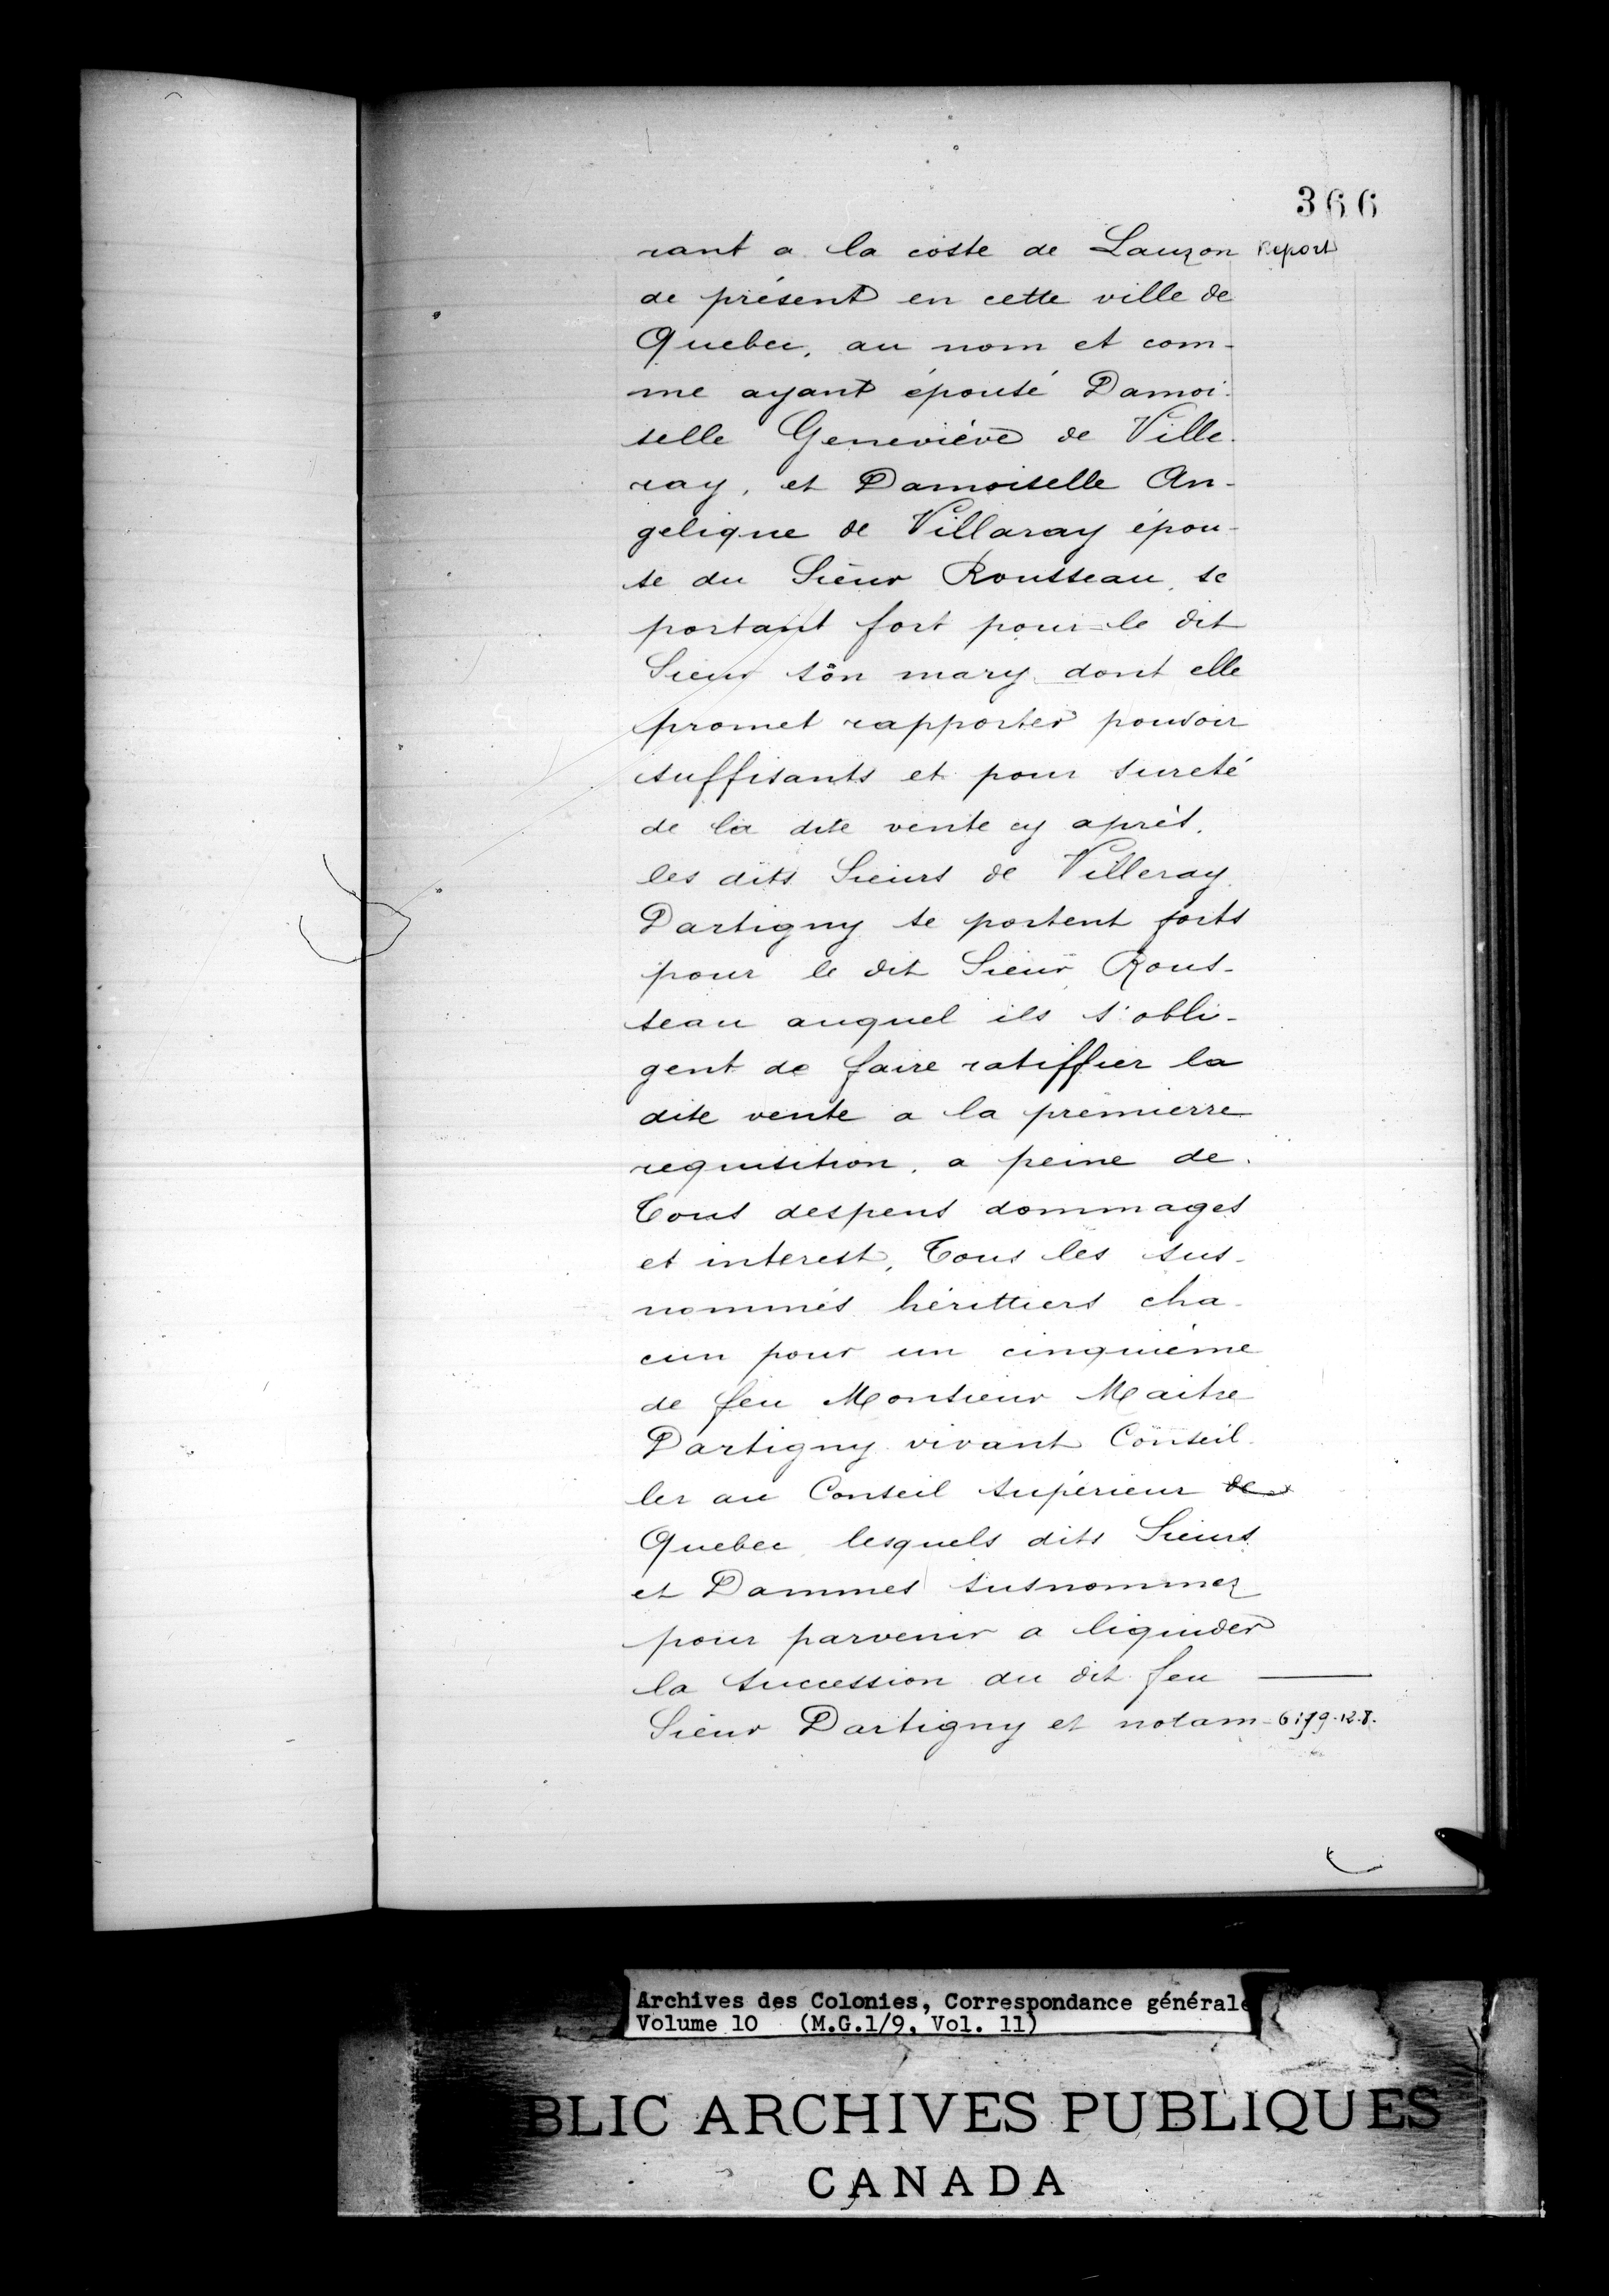 366
rant a la coste de Lauzon Report
de présent en cette ville de
Quebec, au nom et com-
me ayant épousé Damoi-
selle Geneviève de Ville-
ray, et Damoiselle An-
gelique de Villaray épou-
se du Sieur Rousseau, se
portant fort pour le dit
Sieur son mary dont elle
promet rapporter pouvoir
suffisants et pour sureté
de la dite vente cy après,
les dits Sieurs de Villeray
Dartigny se portent forts
pour le dit Sieur Rous-
seau auquel ils s'obli-
gent de faire ratiffier la
dite vente a la premierre
requisition, a peine de
Tous despens dommages
et interest, Tous les sus-
nommés hérittiers cha-
cun pour un cinquième
de feu Monsieur Maitre
Dartigny vivant Conseil-
ler au Conseil supérieur de
Quebec, lesquels dits Sieurs
et Dammes susnommez
pour parvenir a liquider
la succession du dit feu
Sieur Dartigny et notam-
Archives des Colonies, Correspondance générale
Volume 10 (M.G.1/9, Vol. 11)
BLIC ARCHIVES PUBLIQUES
CANADA